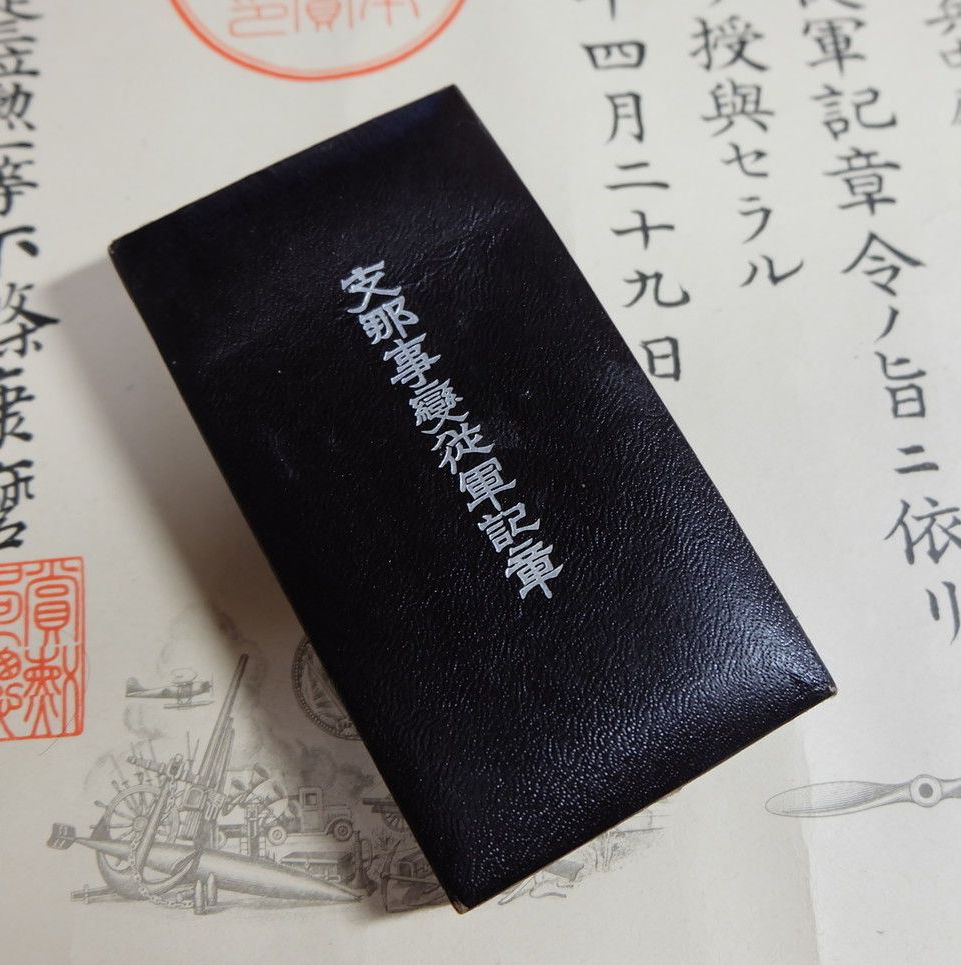 支那事變從軍記章
軍記章令ノ旨ニ依リ
授與セラル
年四月二十九日
三位勲一等下條康麿